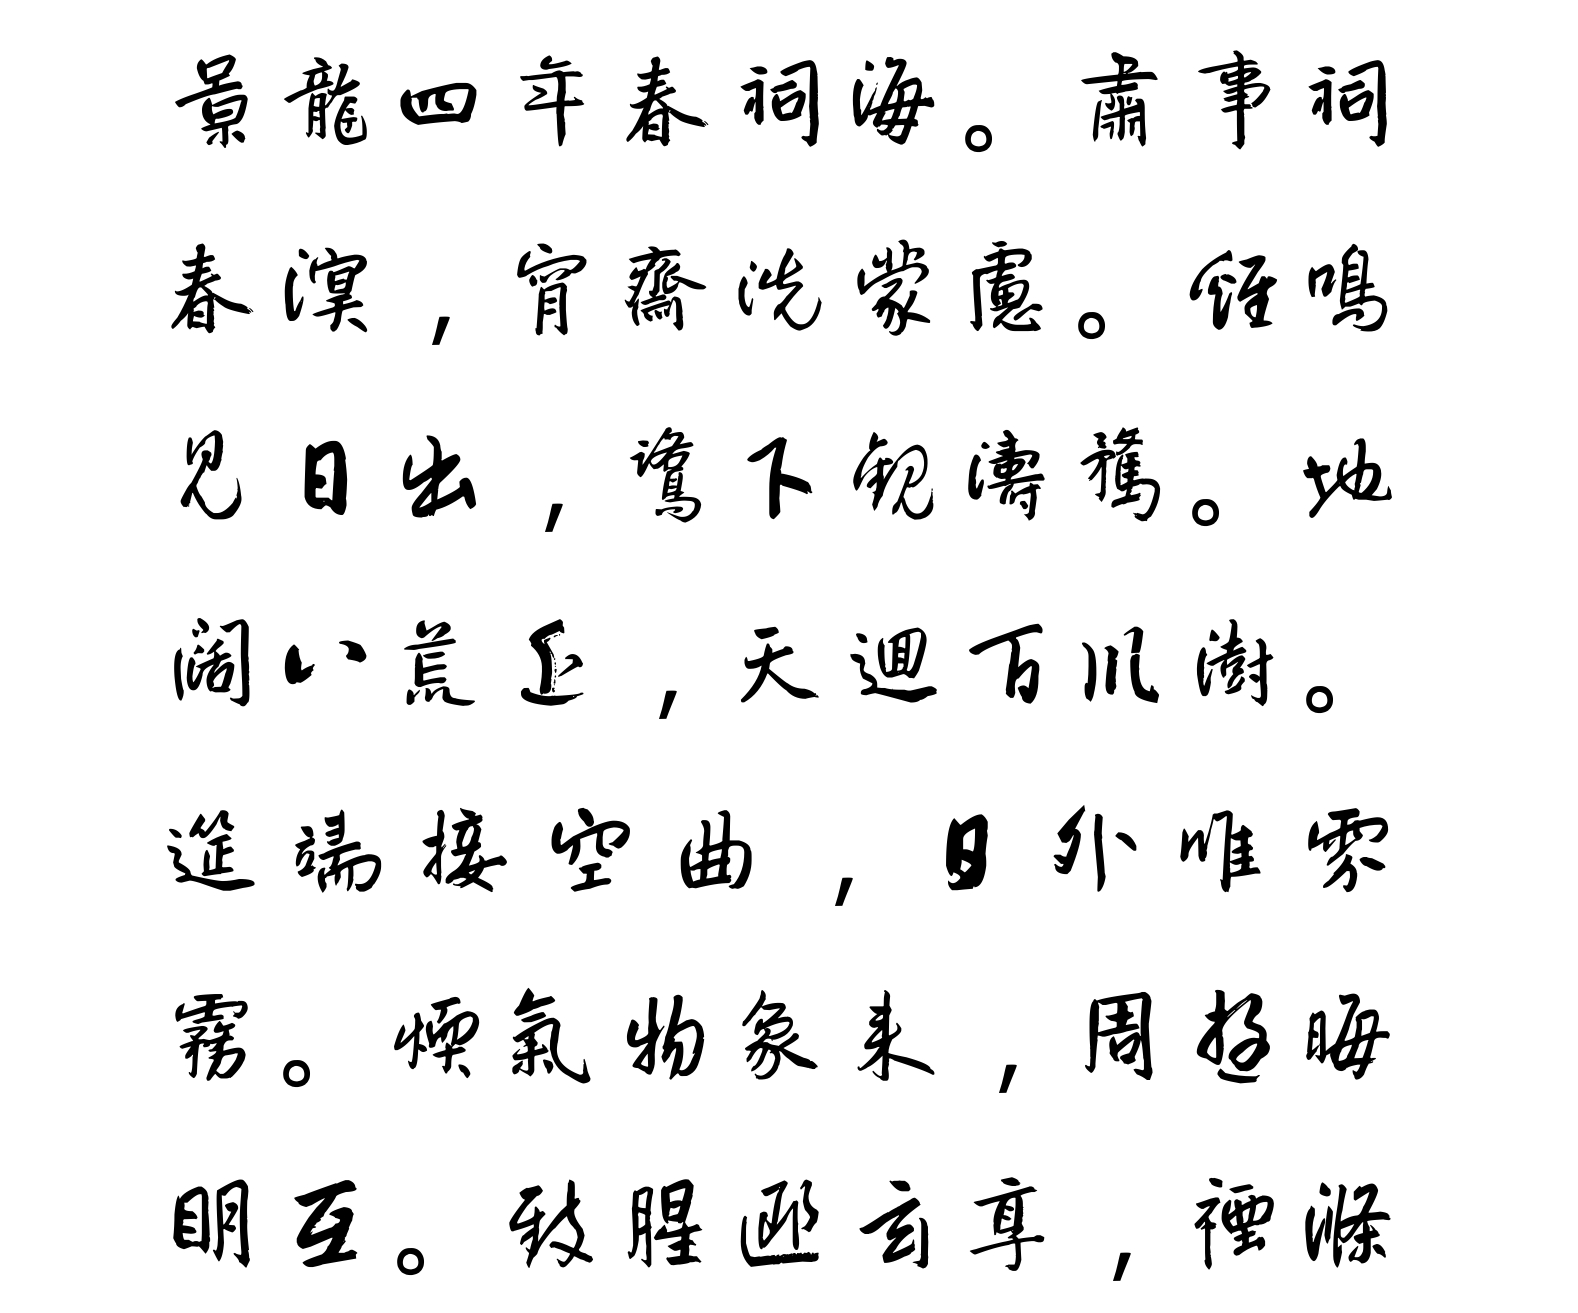 景龍四年春祠海。肅事祠
春溟,宵齋洗蒙慮。雞鳴
見日出,鷺下觀濤鶩。地
闊八荒近,天迴百川澍。
筵端接空曲,日外唯雰
霧。煖氣物象来,周遊晦
明互。致腥匪玄享,禋滌